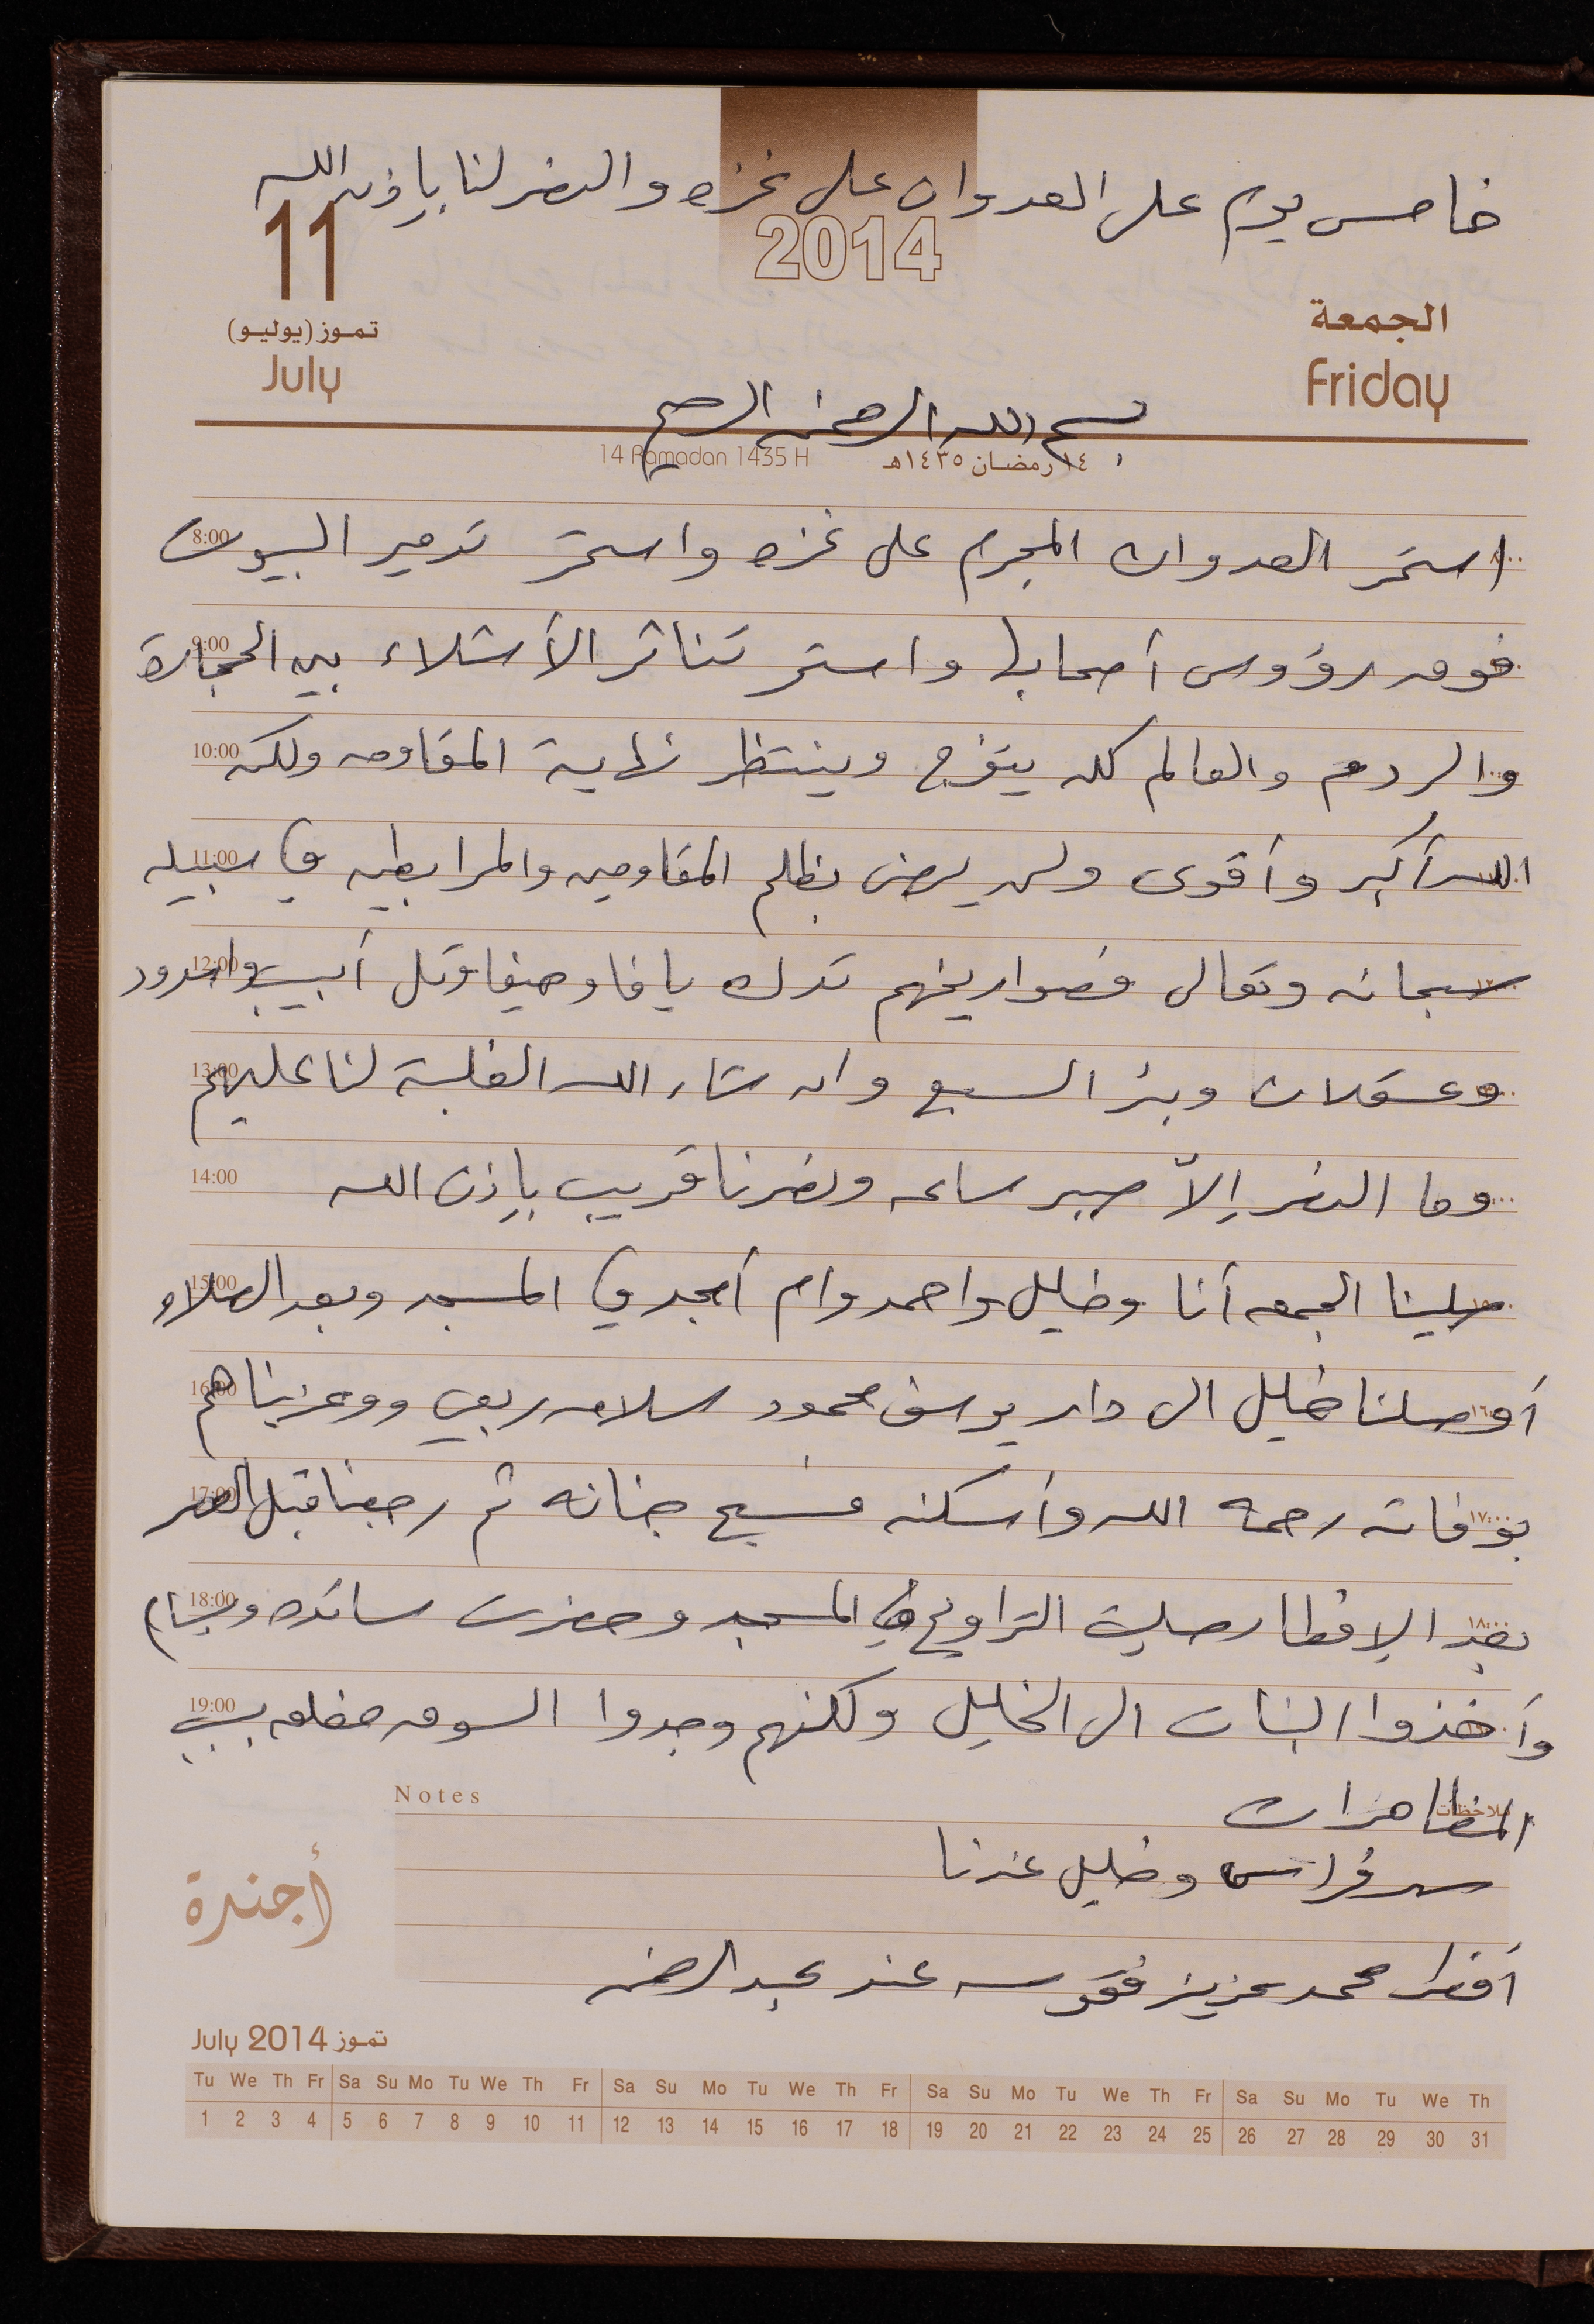 خامس يوم على العدوان على غزه والنصر لنا بإذن الله
2014
11
تموز (يوليو)
July
الجمعة
Friday
بسم الله الرحمن الرحيم
14 Ramadan 1435 H
١٤ رمضان ١٤٣٥هـ
8:00 استمر العدوان المجرم على غزه واستمر تدمير البيوت
9:00 فوق رؤوس أصحابها واستمر تناثر الأشلاء بين الحجارة
10:00 والردم والعالم كله يتفرج وينتظر نهاية المقاومه ولكن
11:00 الله أكبر وأقوى ولن يرضى بظلم المقاومين والمرابطين في سبيله
12:00 سبحانه وتعالى فصواريخهم تدك يافا وحيفا وتل أبيب واسدود
13:00 وعسقلان وبئر السبع وان شاء الله الغلبة لنا عليهم
14:00 وما النصر إلاّ صبر ساعه ونصرنا قريب بإذن الله
15:00 صلينا الجمعه أنا وخليل واحمد وام أمجد في المسجد وبعد الصلاه
16:00 أوصلنا خليل الى دار يوسف محمود سلامه ربعي ووعزيناهم
17:00 ١٧:٠٠ بوفاته رحمه الله وأسكنه فسيح جنانه ثم رجعنا قبل العصر
18:00 ١٨:٠٠ بعد الإفطار صليت التراويح في المسجد وحضرت سائده وبسام
19:00 وأخذوا البنات الى الخليل ولكنهم وجدوا السوق مغلقه بسبب
المظاهرات
Notes
ملاحظات
سهر فراس وخليل عندنا
أفطر محمد عزيز فقوسه عند عبد الرحمن
أجندة
July 2014 تموز
Tu We Th Fr Sa Su Mo Tu We Th Fr Sa Su Mo Tu We Th Fr Sa Su Mo Tu We Th Fr Sa Su Mo Tu We Th
1 2 3 4 5 6 7 8 9 10 11 12 13 14 15 16 17 18 19 20 21 22 23 24 25 26 27 28 29 30 31